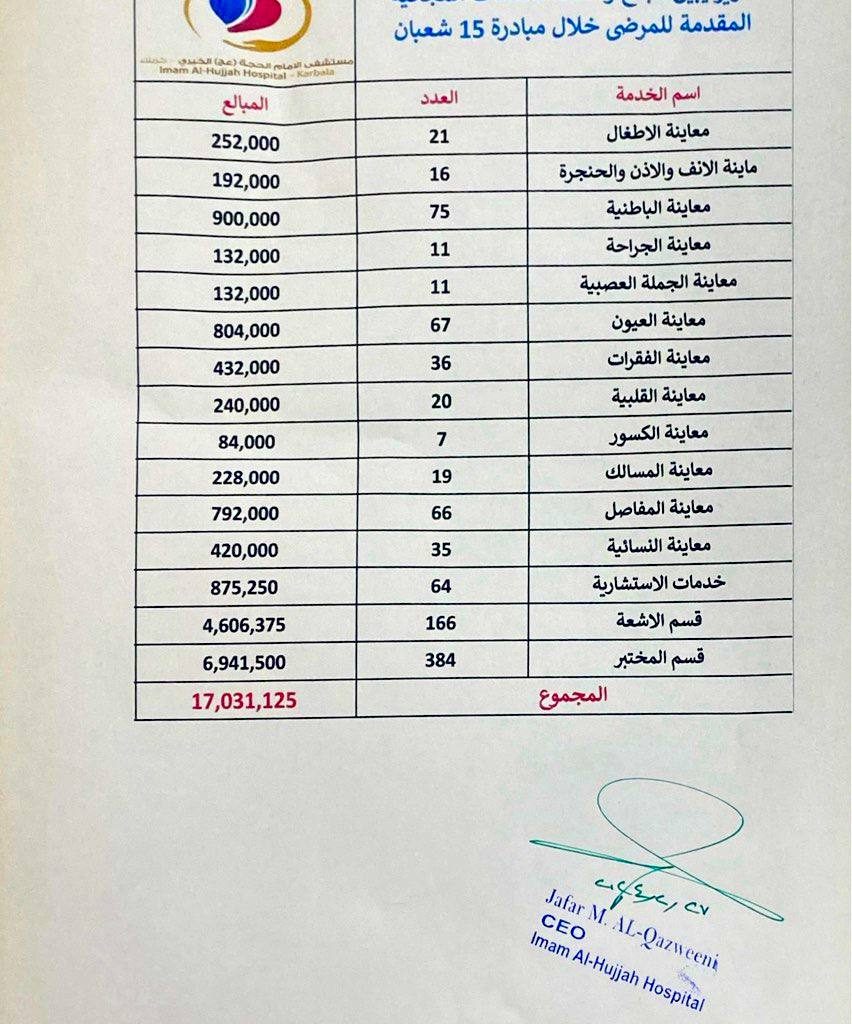 المقدمة للمرضى خلال مبادرة 15 شعبان
مستشفى الامام الحجة (عج) الخيري
Imam Al-Hujjah Hospital - Karbala
اسم الخدمة العدد المبالغ
معاينة الاطفال 21 252,000
ماينة الانف والاذن والحنجرة 16 192,000
معاينة الباطنية 75 900,000
معاينة الجراحة 11 132,000
معاينة الجملة العصبية 11 132,000
معاينة العيون 67 804,000
معاينة الفقرات 36 432,000
معاينة القلبية 20 240,000
معاينة الكسور 7 84,000
معاينة المسالك 19 228,000
معاينة المفاصل 66 792,000
معاينة النسائية 35 420,000
خدمات الاستشارية 64 875,250
قسم الاشعة 166 4,606,375
قسم المختبر 384 6,941,500
المجموع 17,031,125
Jafar M. AL-Qazweeni
CEO
Imam Al-Hujjah Hospital